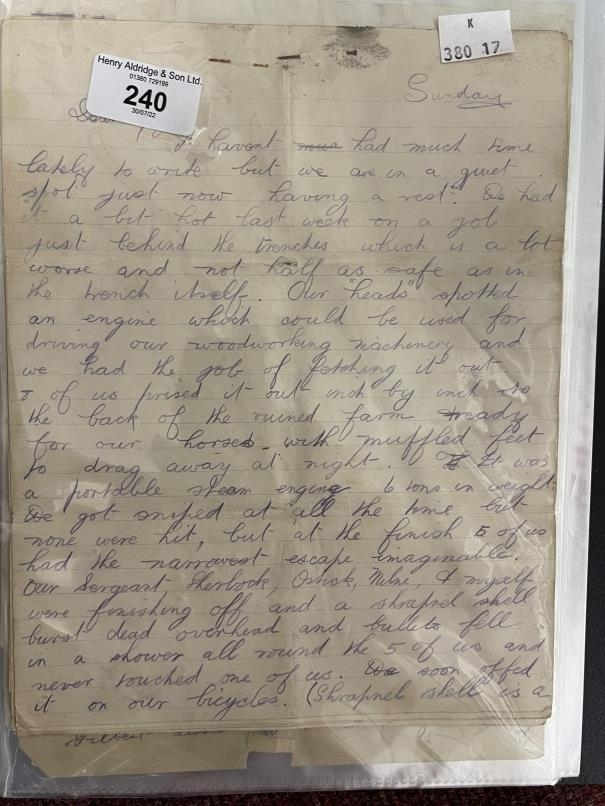 K
380 17
Henry Aldridge & Son Ltd.
01380 729199
240
30/07/22
Sunday
I havent had much time
lately to write but we are in a quiet
spot just now having a rest. We had
it a bit hot last week on a job
just behind the trenches which is a lot
worse and not half as safe as in
the trench itself. Our "heads" spotted
an engine which could be used for
driving our woodworking machinery and
we had the job of fetching it out
of us prised it out inch by inch to
the back of the ruined farm ready
for our horses with muffled feet
to drag away at night. It was
a portable steam engine 6 tons in weight.
We got sniped at all the time but
none were hit, but at the finish 5 of us
had the narrowest escape imaginable.
Our Sergeant, Sherlock, Milne, & myself
were finishing off and a shrapnel shell
burst dead overhead and bullets fell
in a shower all round the 5 of us and
never touched one of us. We soon offed
it on our bicycles. (Shrapnel shell is a